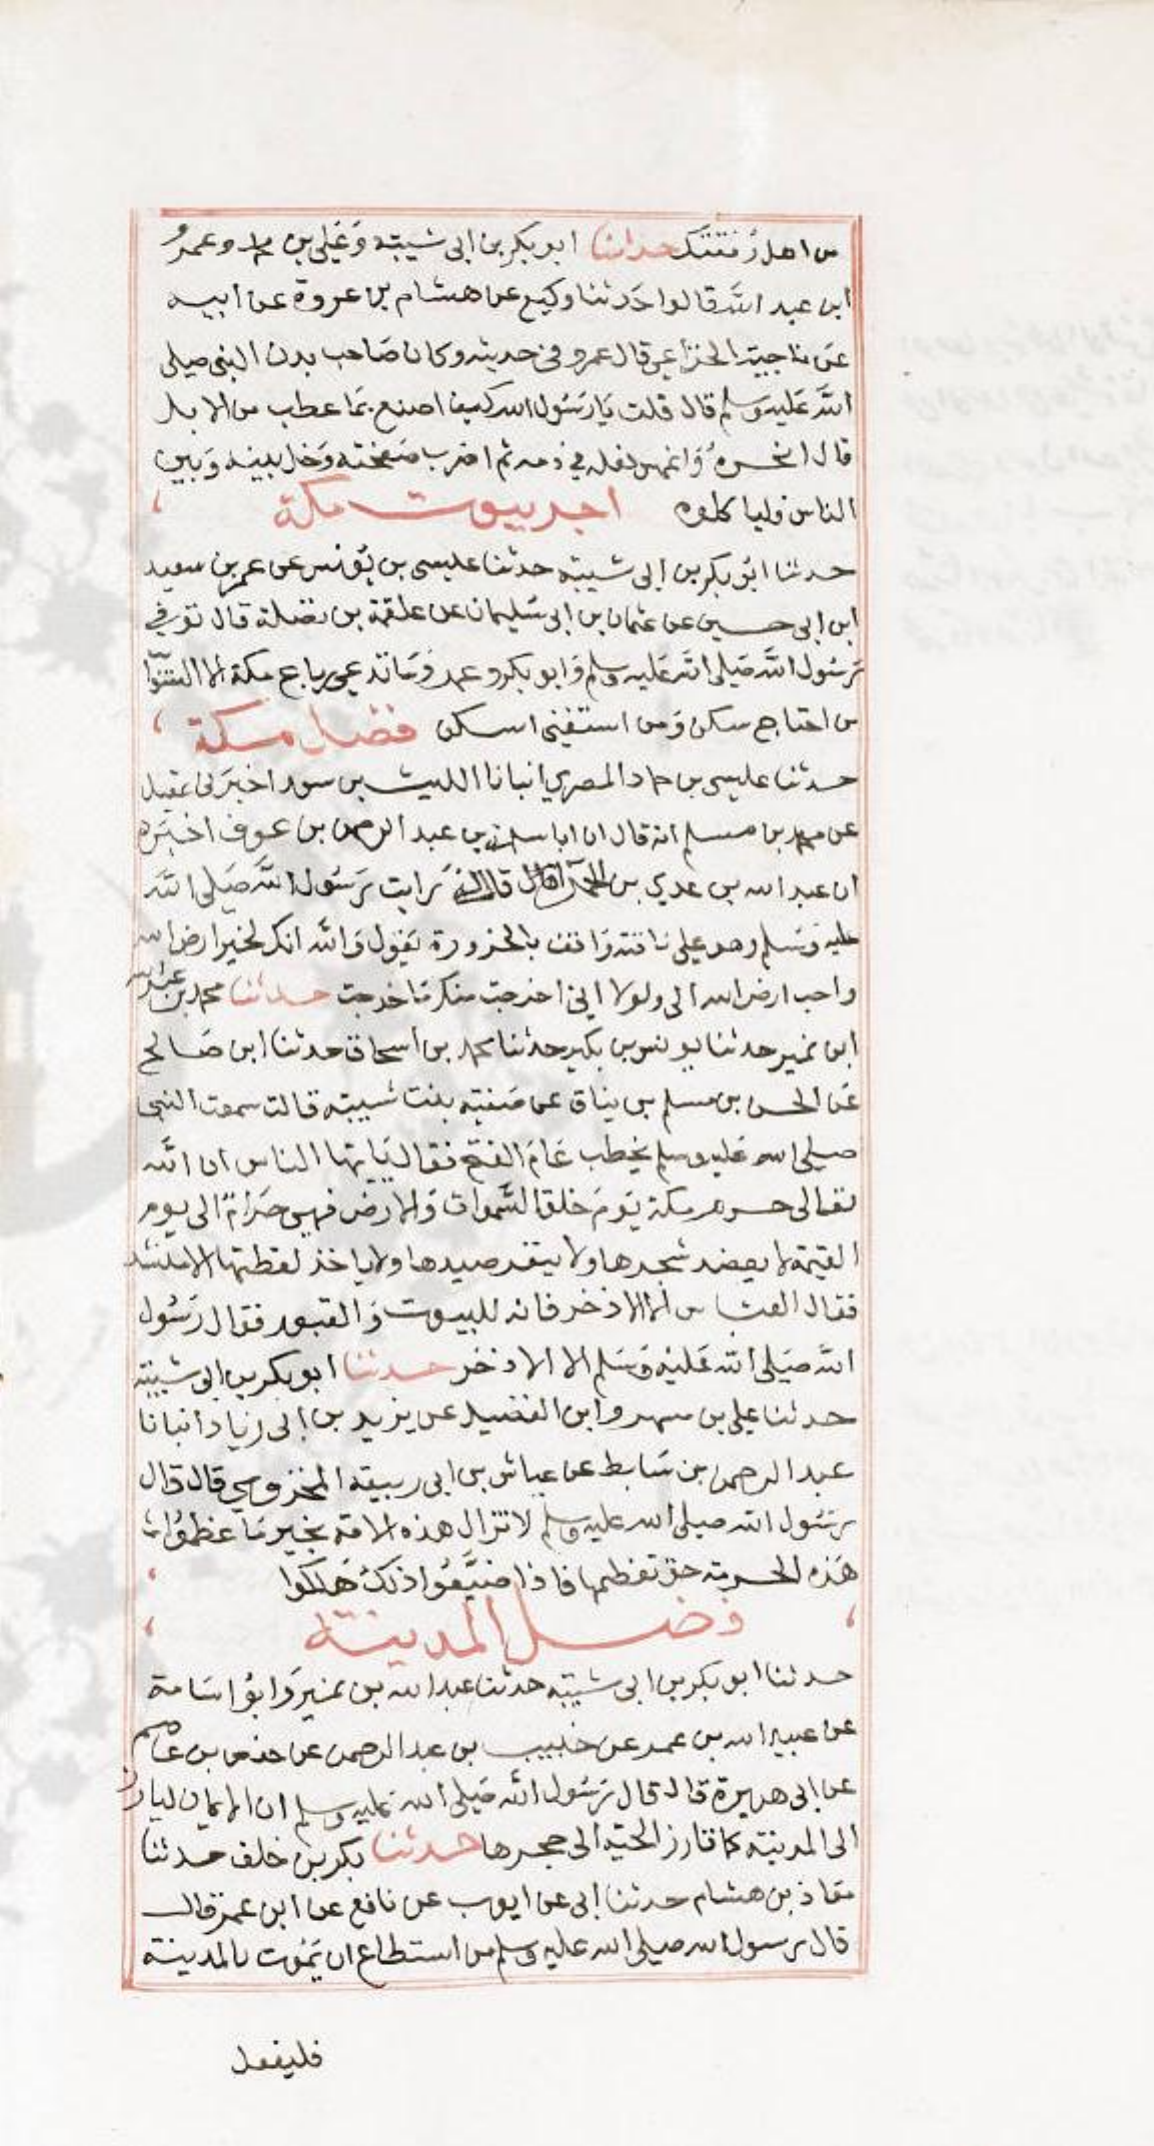 من اهل رفقتك حدثنا ابو بكر بن ابى شيبة وَعَلى بن محمد وعمرُو
ابن عبد اللَّه قالوا حَدثنا وكيع عن هشام بن عروة عن ابيه
عَن ناجية الخزاعي قال عمرو في حديثه وكان صَاحب بدن النبى صلى
اللَّه عَليه وَسلم قال قلت يَا رَسُول الله كيف اصنع بمَا عطب من الابل
قال انحره وَاغمس نعله في دمه ثم اضرب صَفحته وَخل بينه وَبين
الناس فليا كلوه اجر بيوت مكة
حدثنا ابُو بكر بن ابى شيبة حدثنا عيسى بن يُونس عن عمر بن سعيد
ابن ابى حسين عن عثمان بن ابى سُليمان عن علقمة بن نضلة قال توفي
رَسُول اللَّه صَلى اللَّه عَليه وسلم وَابو بكر وعمر وَمَا تدعى رباع مكة الا السَّوَا
من احتاج سكن وَمن استغنى اسكن فضل مكة
حدثنا عيسى بن حماد المصري انبانا الليث بن سعد اخبرَنى عقيل
عن محمد بن مسلم انه قال ان ابا سلمة بن عبد الرحمن بن عوف اخبَره
ان عبد الله بن عدي بن الحمرا قال له رَايت رَسُول اللَّه صَلى اللَّه
عليه وَسَلم وهو على ناقته وَاقف بالحزورة يَقول وَالله انك لخير ارض الله
واحب ارض الله الى ولولا انى اخرجت منك مَا خرجت حدثنا محمد بن عبد الله
ابن نمير حدثنا يونس بن بكير حدثنا محمد بن اسحاق حدثنا ابن صَالح
عَن الحسن بن مسلم بن يناق عن صَفية بنت شيبة قالت سمعت النبى
صلى الله عَليه وسلم يخطب عَامَ الفتح فقال يَا يها الناس ان اللَّه
تعالى حرم مكة يَومَ خلق السَّموات وَالارض فهى حَرَامٌ الى يوم
القيمة لا يعضد شجرها ولا ينفر صيدها ولا ياخذ لقطتها الا منشد
فقال العباس الا الاذخر فانه للبيوت وَالقبور فقال رَسُول
اللَّه صَلى اللَّه عَليْه وَسَلم الا الاذخر حدثنا ابو بكر بن ابى شيبة
حدثنا على بن مسهر وابن الفضيل عن يزيد بن ابى زياد انبانا
عبد الرحمن بن سَابط عن عياش بن ابى ربيعة المخزومي قال قال
رَسُول اللَّه صلى الله عليه وسلم لا تزال هذه الامة بخير مَا عظمُوا
هَذه الحرمة حق تعظيمها فاذا ضيَّعُوا ذلكَ هَلكُوا
فضل المدينة
حدثنا ابو بكر بن ابى شيبة حدثنا عبد الله بن نمير وَابوُ اسَامة
عن عبيد الله بن عمر عن خبيب بن عبد الرحمن عن حفص بن عاصم
عن ابى هريرة قال قال رَسُول اللَّه صَلى الله عليه وسلم ان الايمان ليارز
الى المدينة كما تارز الحية الى جحرها حدثنا بكر بن خلف حدثنا
معاذ بن هشام حدثنا ابى عن ايوب عن نافع عن ابن عمر قال
قال رسول الله صلى الله عليه وسلم من استطاع ان يَمُوت بالمدينة
فليفعل